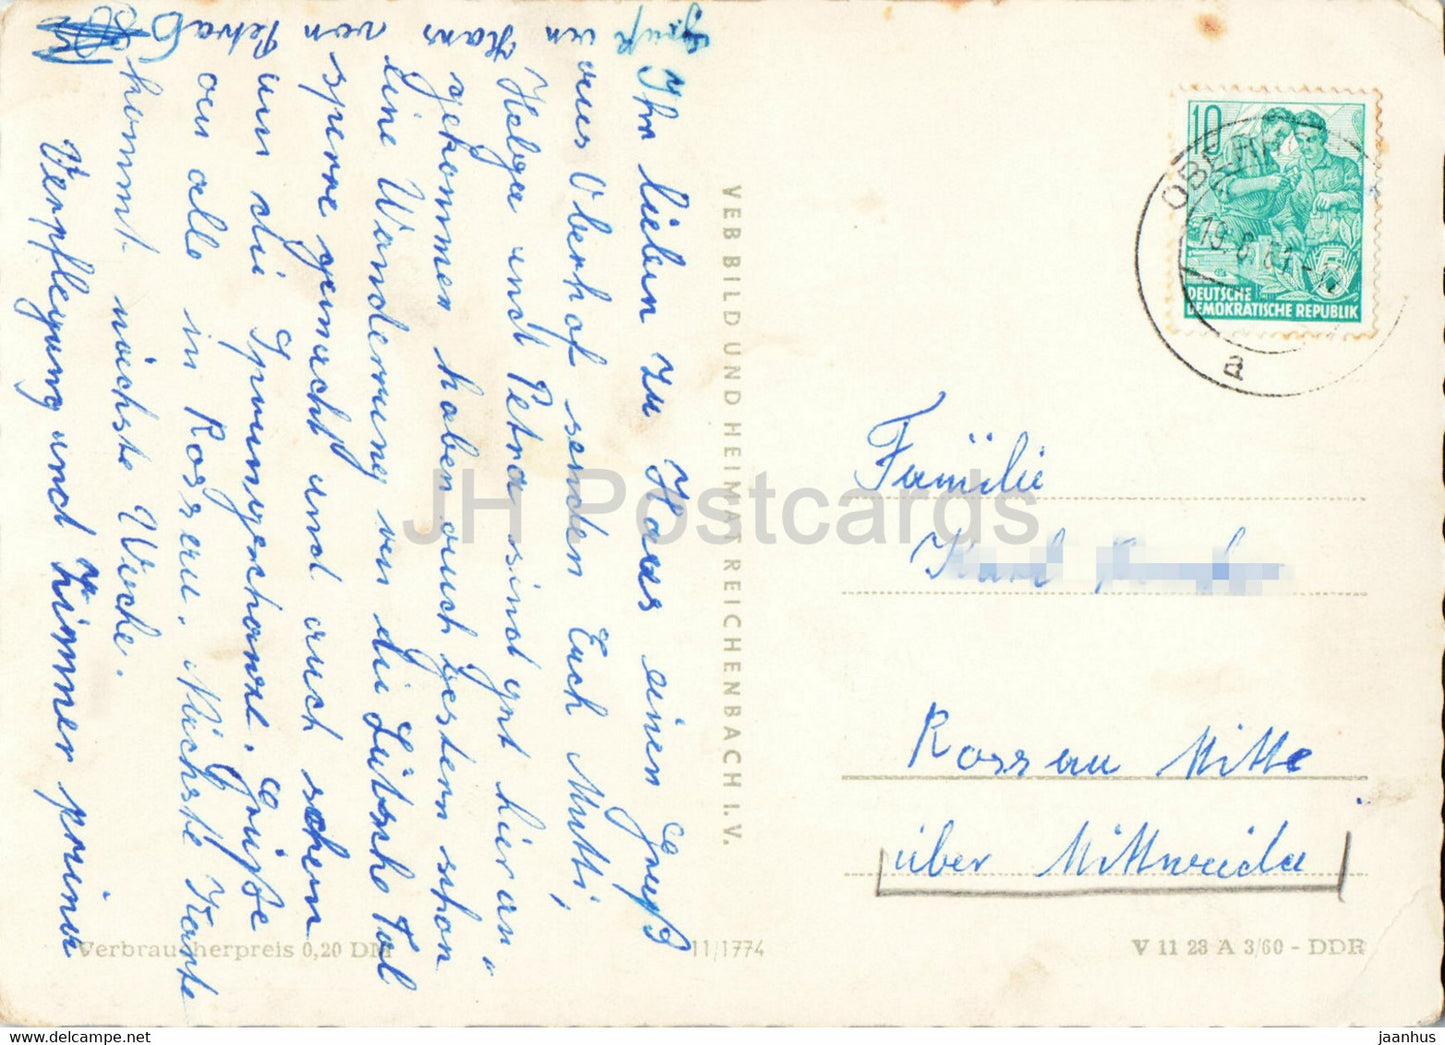 Ihr lieben zu Haus einen Gruß
aus Oberhof senden Euch Mutti,
Helga und Petra sind gut hier an-
gekommen haben auch gestern schon
eine Wanderung an die Lütsche Tal
sperre gemacht und auch schon
um die Sprungschanze. Grüße
an alle in Rossau. Nächste Karte
kommt nächste Woche.
Verpflegung und Zimmer prima
Gruß an Hans von Petra
VEB BILD UND HEIMAT REICHENBACH I. V.
10
DEUTSCHE
DEMOKRATISCHE REPUBLIK
5
19.8.61
a
Familie
Karl
Rossau Mitte
über Mittweida
Verbraucherpreis 0,20 DM
11/1774
V 11 28 A 3/60 - DDR
JH Postcards
www.hippostcard.com
jaanhus